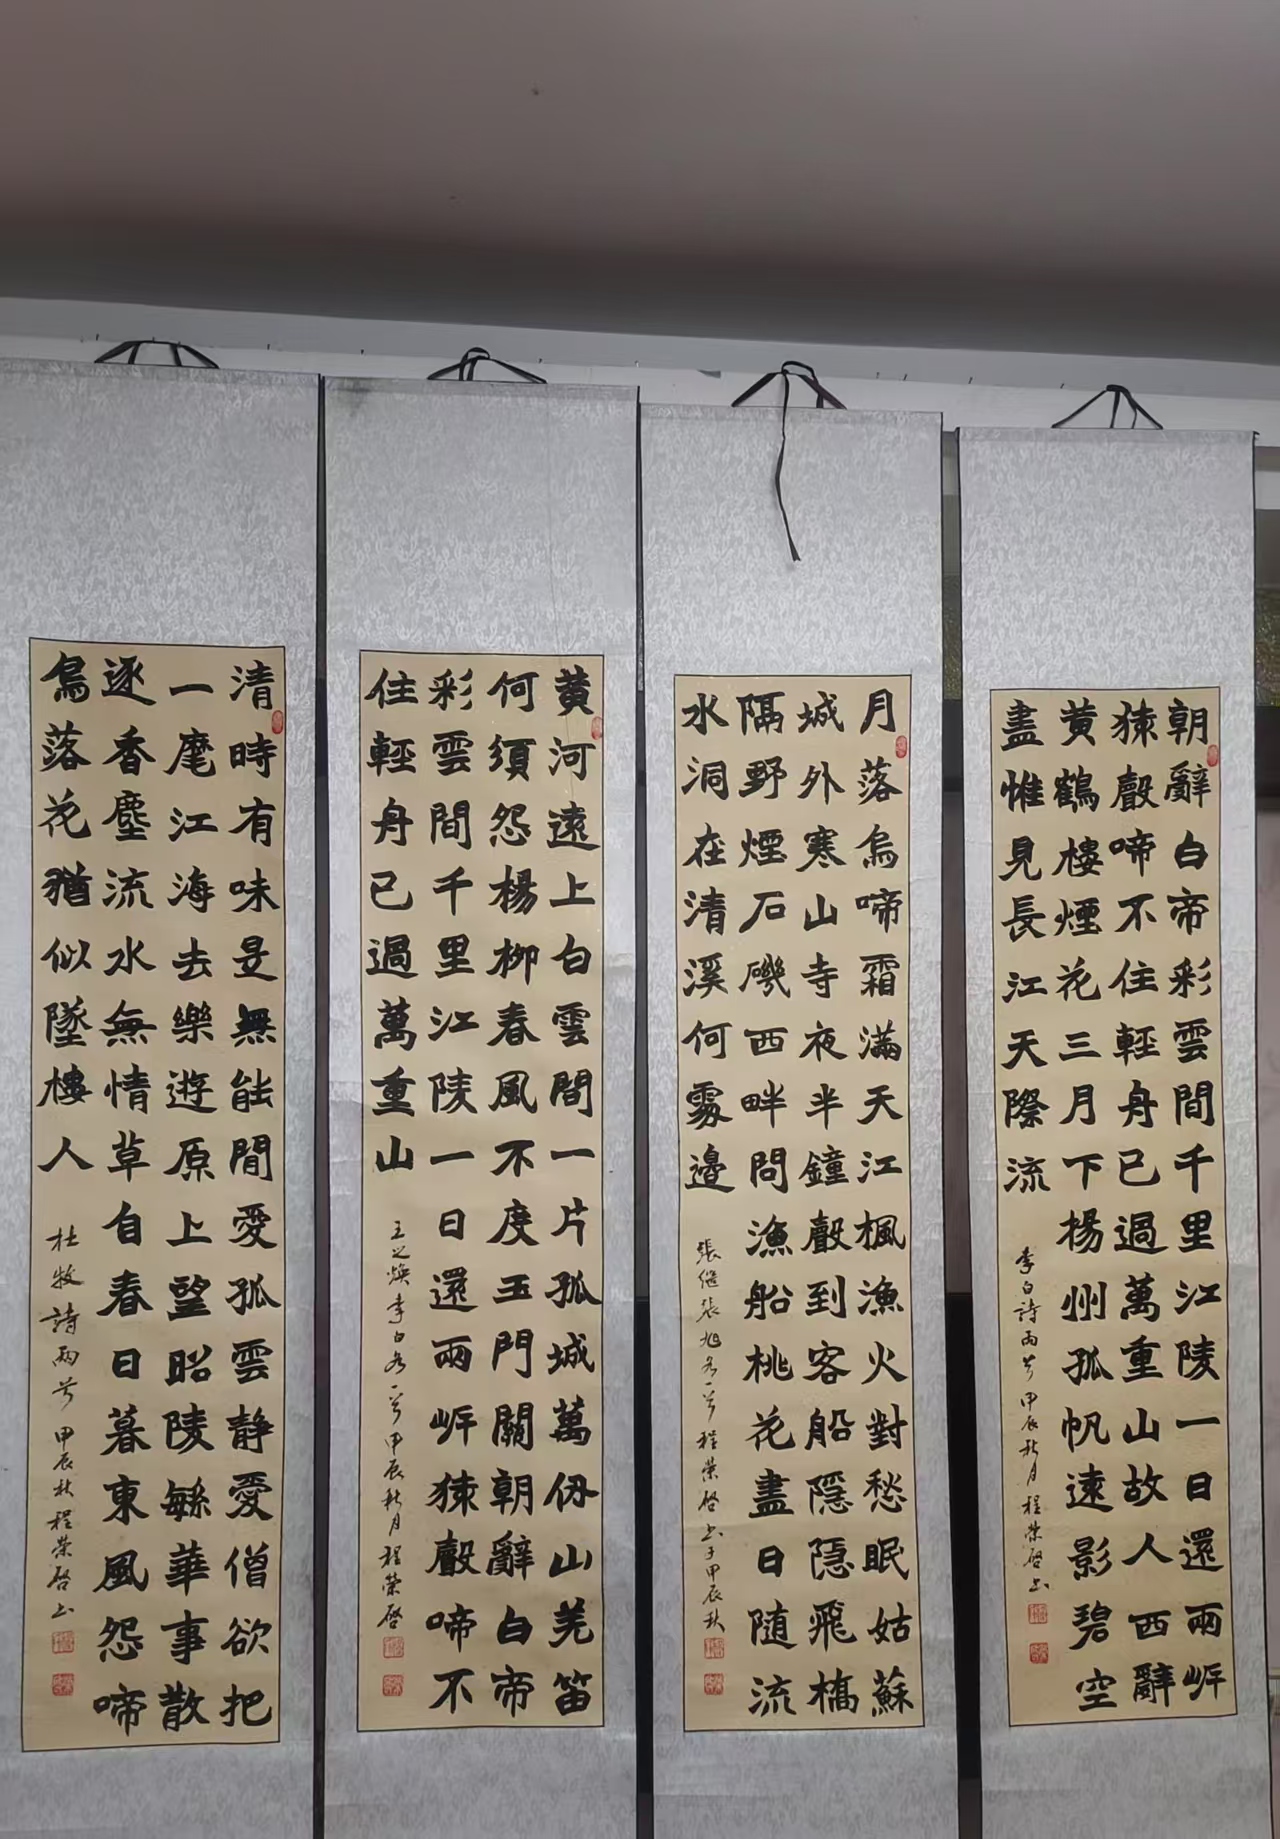 朝辭白帝彩雲間千里江陵一日還兩岍
猿聲啼不住輕舟已過萬重山故人西辭
黄鶴樓煙花三月下楊州孤帆遠影碧空
盡惟見長江天際流
李白詩兩首甲辰秋月程榮啓书
月落烏啼霜滿天江楓漁火對愁眠姑蘇
城外寒山寺夜半鐘聲到客船隱隱飛橋
隔野煙石磯西畔問漁船桃花盡日随流
水洞在清溪何處邊
張继張旭各一首程榮啓书于甲辰秋
黄河遠上白雲間一片孤城萬仞山羌笛
何須怨楊柳春風不度玉門關朝辭白帝
彩雲間千里江陵一日還兩岍猿聲啼不
住輕舟已過萬重山
王之焕李白各一首甲辰秋月程榮啓
清時有味是無能閒愛孤雲静愛僧欲把
一麾江海去樂遊原上望昭陵繁華事散
逐香塵流水無情草自春日暮東風怨啼
鳥落花猶似墜樓人
杜牧詩兩首甲辰秋程榮啓书